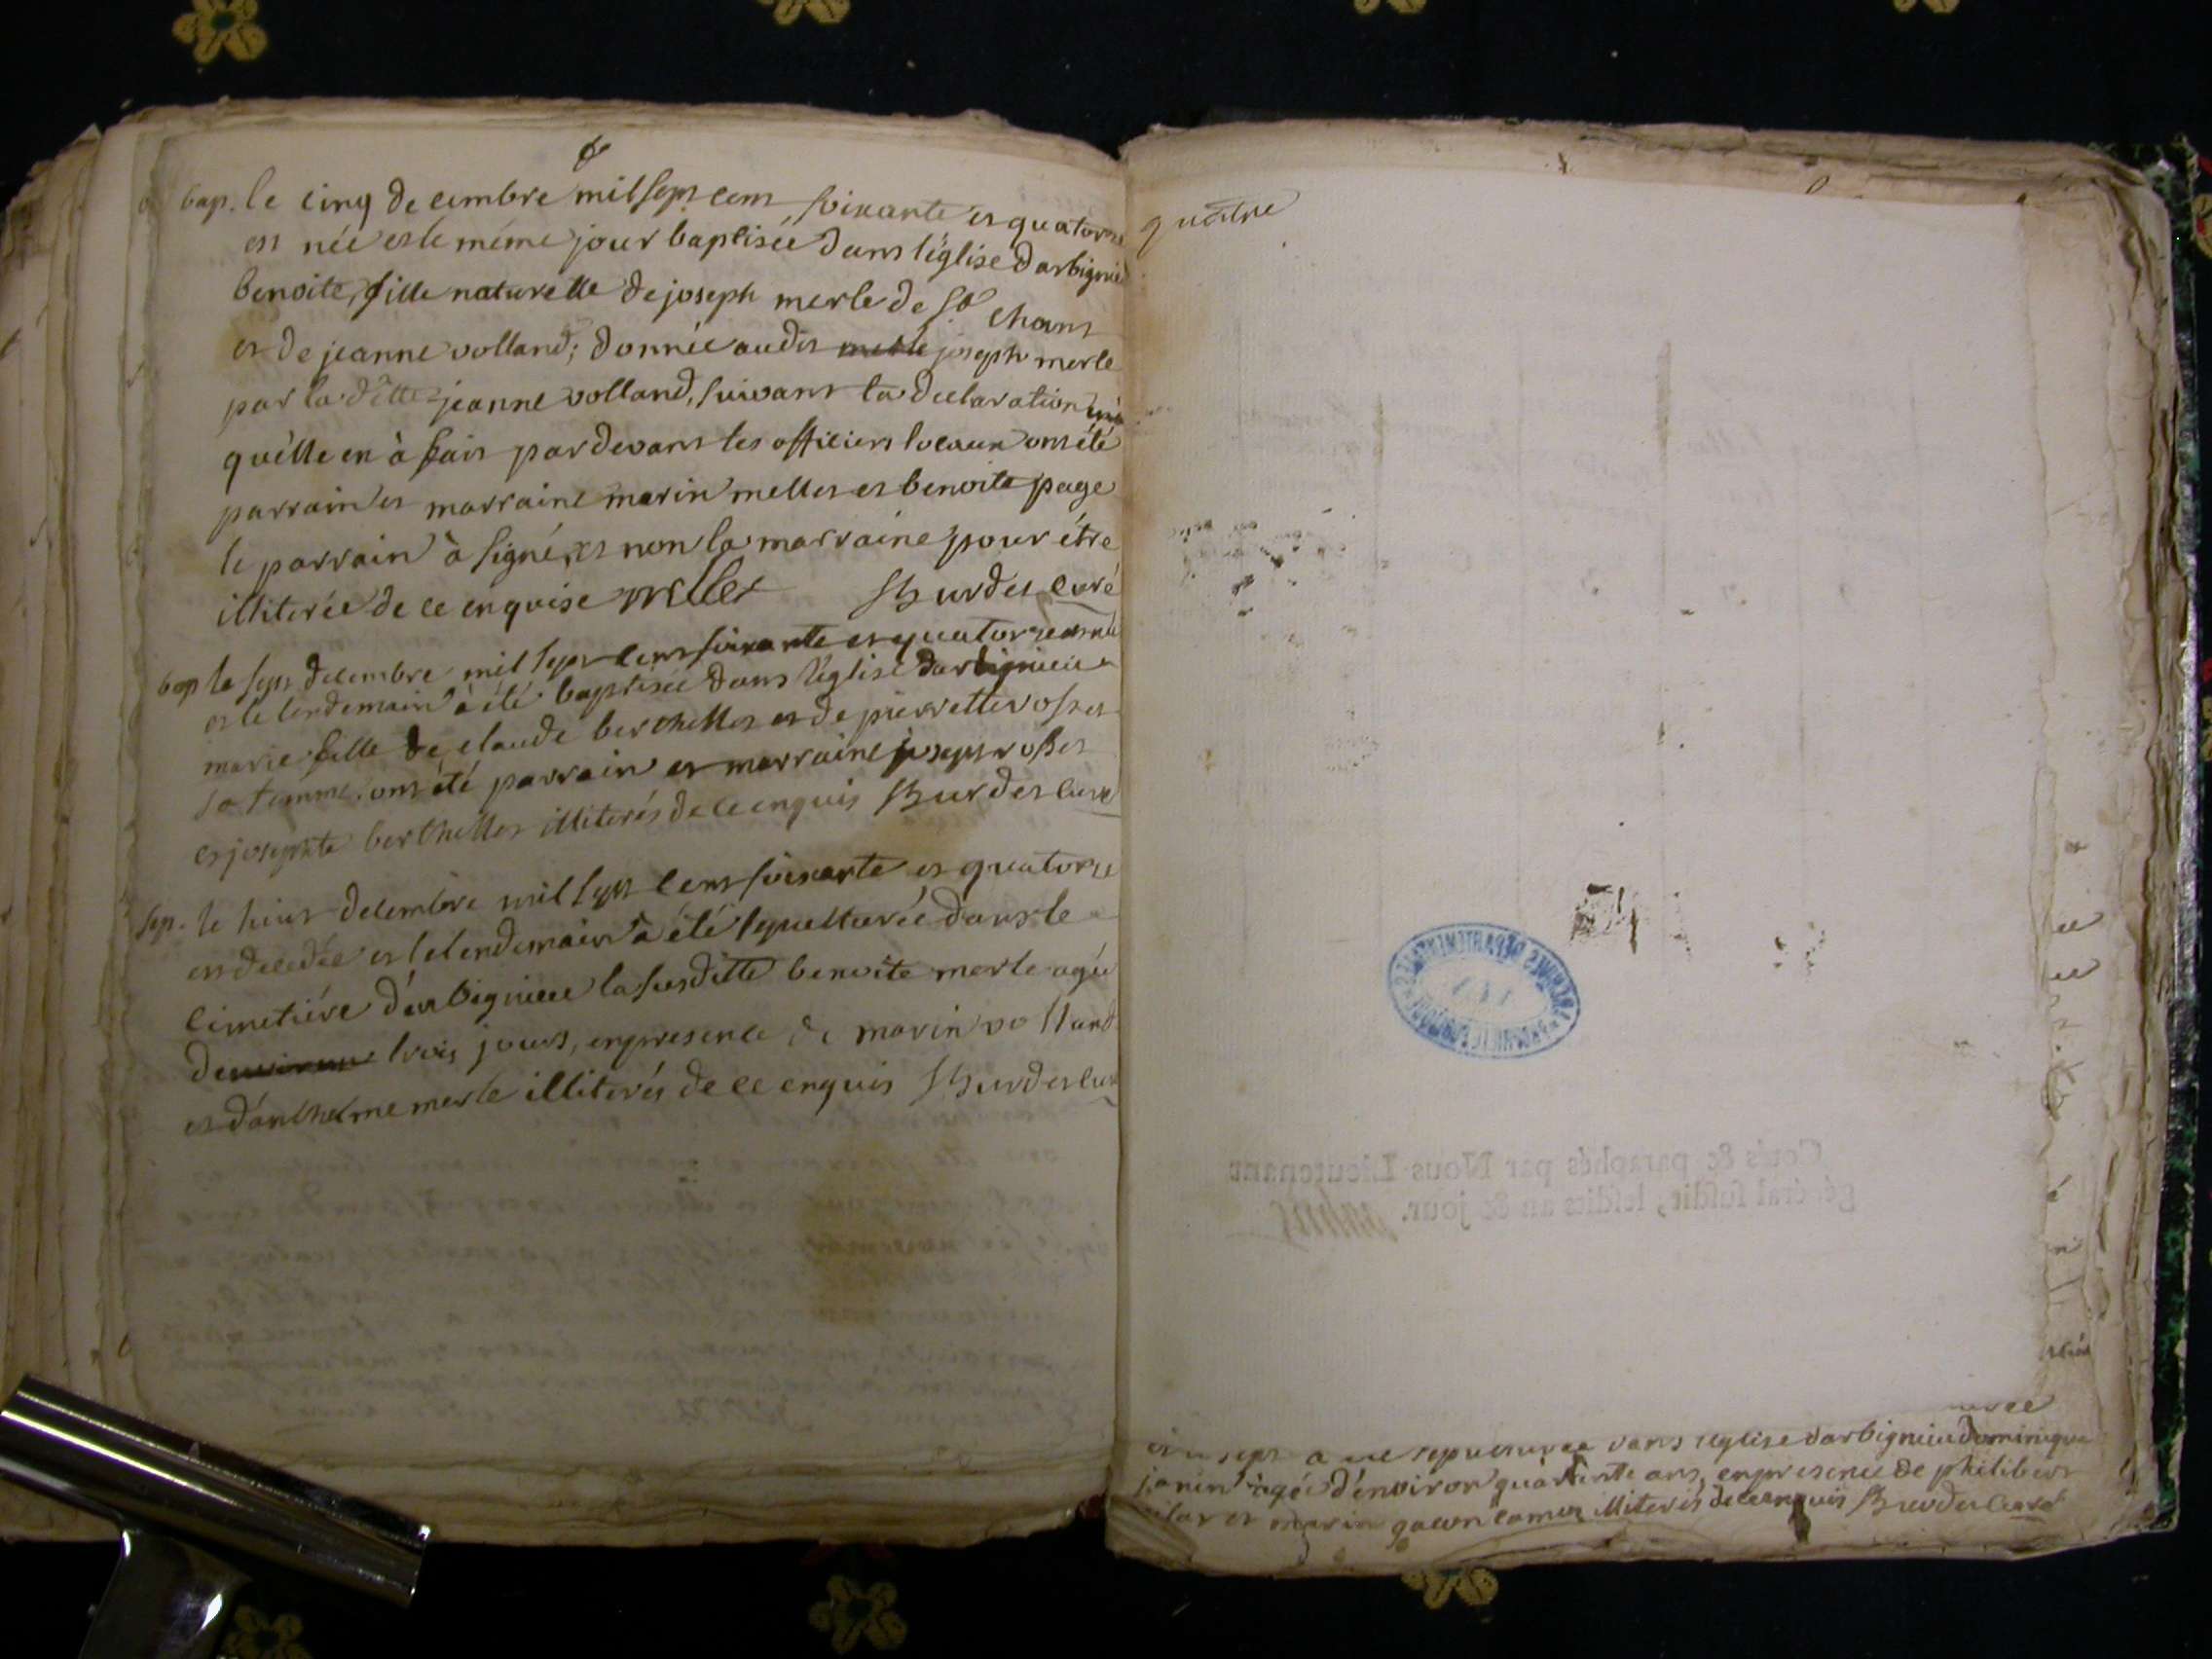 bap. le cinq decembre mil sept cent soixante et quatorze
est née et le même jour baptisée dans l'église darbignieu
benoite, fille naturelle de joseph merle de st chant
et de jeanne volland; donnée audit merle joseph merle
par la ditte jeanne volland, suivant la declaration
qu'elle en à fait pardevant les officiers locaux ont été
parrain et marraine marin mellet et benoite page
le parrain à signé, et non la marraine pour être
illiterée de ce enquise mellet Burdet curé
bap le sept decembre mil sept cent soixante et quatorze est née
et le lendemain à été baptisée dans l'église darbignieu
marie fille de claude berthellet et de pierrette rosset
sa femme. ont été parrain et marraine joseph rosset
et josephte berthellet illiterés de ce enquis Burdet curé
sep. le huit decembre mil sept cent soixante et quatorze
est decedée et le lendemain à été sepulturée dans le
cimetiére d'arbignieu la susditte benoite merle agée
de trois jours, en presence de marin volland
et d'anthelme merle illiterés de ce enquis Burdet curé
quatre
ARCHIVES DEPARTEMENTALES
Cotés & paraphés par Nous Lieutenant
général susdit, lesdits an & jour.
sept a été sepulturée dans l'église darbignieu dominique
janin agée d'environ quarante ans, en presence de philibert
et marin illiterés de ce enquis Burdet curé